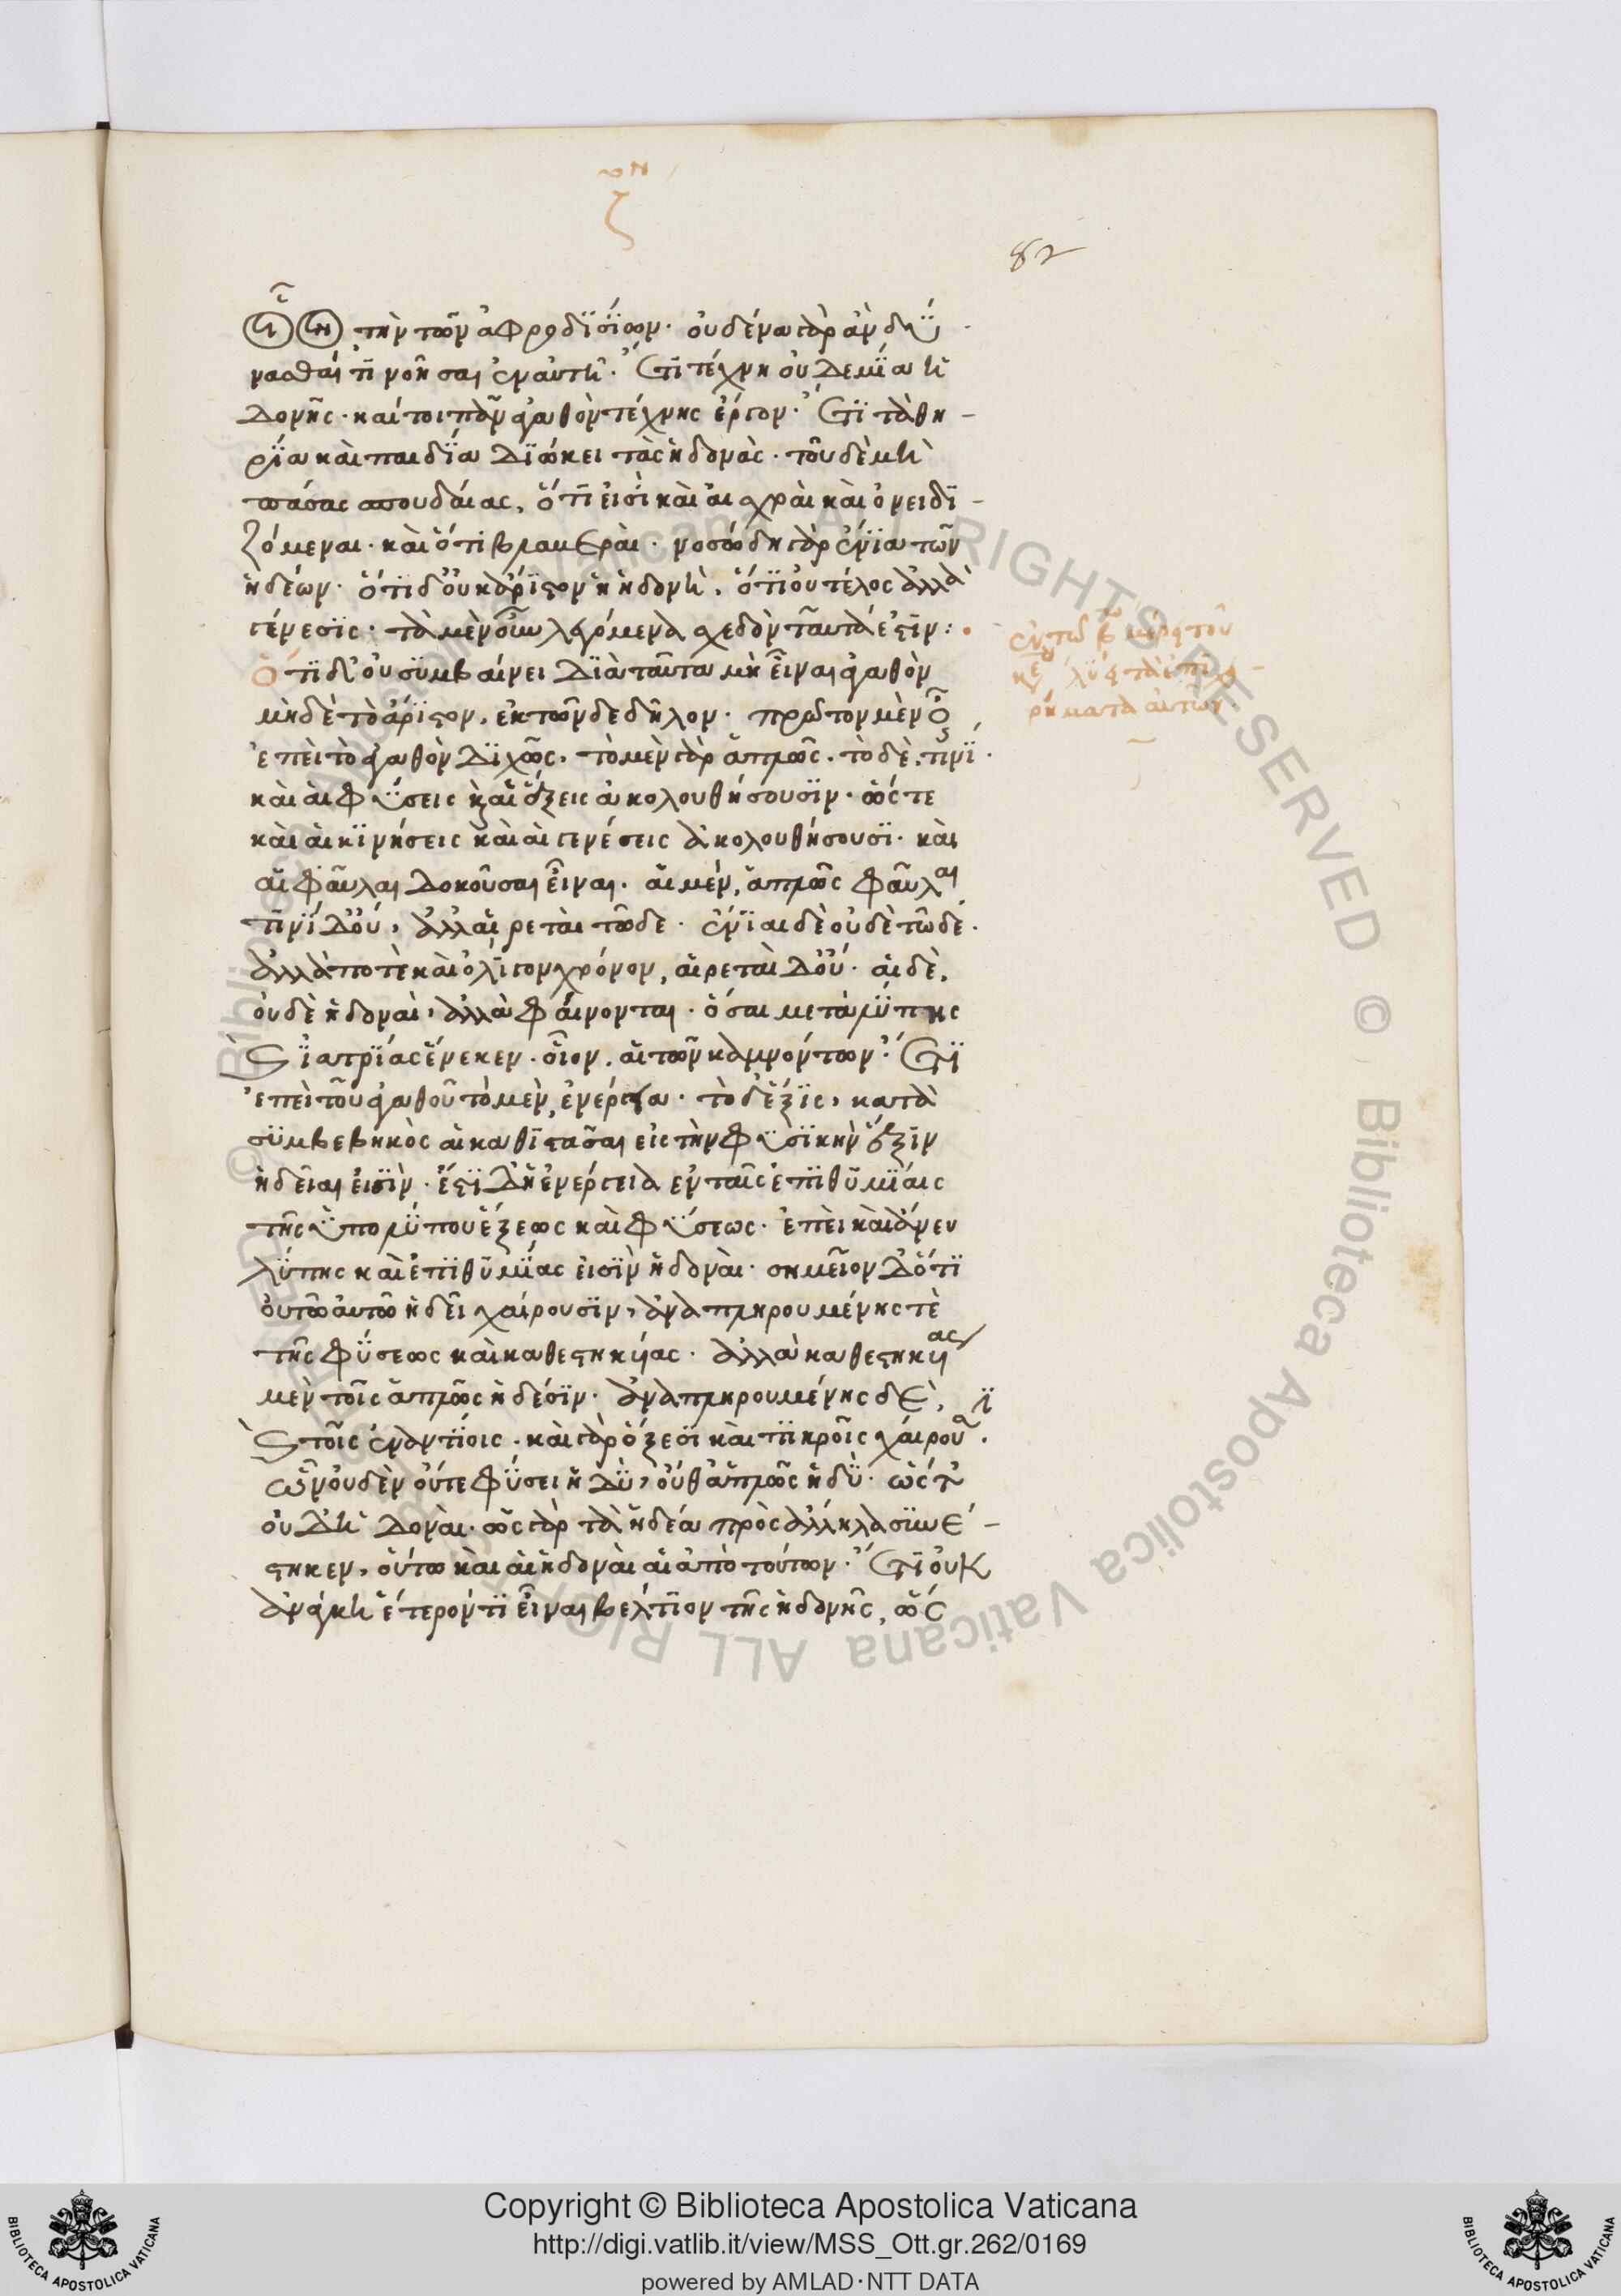 ζ
82
τὴν τῶν ἀφροδϊσΐων· οὐδένα γὰρ ἀν δϋ
νασθαί τϊ νοῆσαι ἐν αὐτῆ· ἔτϊ τέχνη οὐδεμΐα ἡ
δονῆς· καίτοι πᾶν ἀγαθὸν τέχνης ἔργον· ἔτϊ τὰ θη -
ρΐα καὶ παιδΐα διώκει τὰς ἡδονὰς· τοῦ δὲ μὴ
πάσας σπουδαίας, ὅτϊ εἰσὶ καὶ αἰσχραὶ καὶ ὀνειδϊ -
ζόμεναι· καὶ ὅτι βλαβεραὶ· νοσώδη γὰρ ἔνϊα τῶν
ἡδέων· ὅτϊ δ' οὐκ ἄρϊστον ἡ ἡδονὴ, ὅτϊ οὐ τέλος ἀλλὰ
γένεσϊς· τὰ μὲν οὖν λεγόμενα σχεδὸν ταῦτὰ ἐστϊν:
Ὅτϊ δ' οὐ σϋμβαίνει δϊὰ ταῦτα μὴ εἶναι ἀγαθὸν
μὴδὲ τὸ ἄρϊστον, ἐκ τῶνδε δῆλον· πρῶτον μὲν
ἐπεὶ τὸ ἀγαθὸν δϊχῶς, τὸ μὲν γὰρ ἁπλῶς, τὸ δὲ, τϊνΐ·
καὶ αἱ φϋσεις καὶ αἱ ἕξεις ἀκολουθήσουσϊν· ὥςτε
καὶ αἱ κϊνήσεις καὶ αἱ γενέσεις ἀκολουθήσουσϊ· καὶ
αἱ φαῦλαι δοκοῦσαι εἶναι· αἱ μέν, ἁπλῶς φαῦλαι
τϊνΐ δ' οὔ, ἀλλ' αἱρεταὶ τῶδε· ἔνϊαι δὲ οὐδὲ τῶδε·
ἀλλὰ ποτὲ καὶ ὀλΐγον χρόνον, αἱρεταὶ δ' οὔ· αἱ δὲ,
οὐδὲ ἡδοναὶ, ἀλλὰ φαίνονται· ὅσαι μετὰ λϋπης
καὶ ἰατρϊάς ἕνεκεν· οἷον, αἱ τῶν καμνόντων· ἔτϊ
ἐπεὶ τοῦ ἀγαθοῦ τὸ μὲν, ἐνέργεια· τὸ δ' ἕξϊς, κατὰ
σϋμβεβηκὸς αἱ καθϊστᾶσαι εἰς τὴν φϋσϊκὴν ἕξϊν
ἡδεῖαι εἰσϊν· ἔστϊ δ' ἡ ἐνέργεια ἐν ταῖς ἐπϊθϋμΐαις
τῆς ϋπολϋπου ἕξεως καὶ φϋσεως· ἐπεὶ καὶ ἄνευ
λϋπης καὶ ἐπϊθϋμΐας εἰσϊν ἡδοναὶ· σημεῖον δ' ὅτϊ
οὐτῶ αὐτῶ ἡδεῖ χαίρουσϊν, ἀναπληρουμένης τὲ
τῆς φϋσεως καὶ καθεστηκϊας· ἀλλὰ καθεστηκϊας
μὲν τοῖς ἁπλῶς ἡδέσϊν· ἀναπληρουμένης δὲ,
καὶ τοῖς ἐναντΐοις· καὶ γὰρ ὄξεσϊ καὶ πϊκροῖς χαίρουσ·
ὧν οὐδὲν οὔτε φϋσει ἡδϋ, οὔθ' ἁπλῶς ἡδϋ· ὥςτ'
οὐδ' ἡδοναὶ· ὡς γὰρ τὰ ἡδέα πρὸς ἄλληλα σϋνέ -
στηκεν, οὕτω καὶ αἱ ἡδοναὶ αἱ ἀπὸ τούτων· ἔτϊ οὐκ
ἀνάγκη ἕτερόν τϊ εἶναι βέλτϊον τῆς ἡδονῆς, ὥς
ἐν τῶ β μέρει τοῦ
λύει τὰ ἐπιχει -
ρήματα αὐτῶν·
Copyright © Biblioteca Apostolica Vaticana
http://digi.vatlib.it/view/MSS_Ott.gr.262/0169
powered by AMLAD·NTT DATA
BIBLIOTECA APOSTOLICA VATICANA
BIBLIOTECA APOSTOLICA VATICANA
© Biblioteca Apostolica Vaticana ALL RIGHTS RESERVED